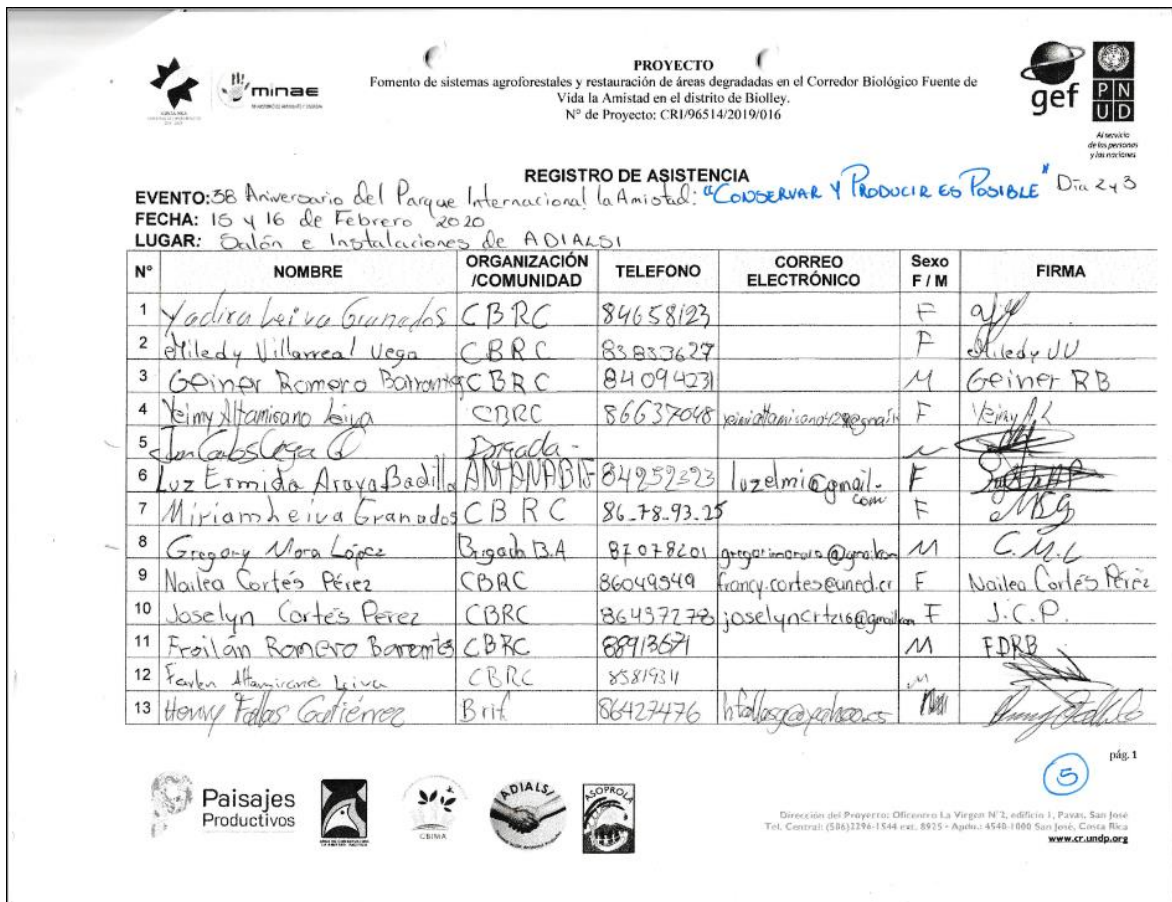 PROYECTO
Fomento de sistemas agroforestales y restauración de áreas degradadas en el Corredor Biológico Fuente de
Vida la Amistad en el distrito de Biolley.
N° de Proyecto: CRI/96514/2019/016
minae
gef
PN
UD
Al servicio
de las personas
y las naciones
REGISTRO DE ASISTENCIA
EVENTO: 38 Aniversario del Parque Internacional la Amistad: "CONSERVAR Y PRODUCIR ES POSIBLE" Día 2 y 3
FECHA: 15 y 16 de Febrero 2020
LUGAR: Salón e Instalaciones de ADIALSI
N° NOMBRE ORGANIZACIÓN /COMUNIDAD TELEFONO CORREO ELECTRÓNICO Sexo F / M FIRMA
1 Yadira Leiva Granados CBRC 84658123 F
2 Miledy Villarreal Vega CBRC 83833627 F Miledy VV
3 Geiner Romero Barrantes CBRC 84094231 M Geiner RB
4 Yeimy Altamirano Leiva CBRC 86637048 F Yeimy A.L
5 Brigada
6 Luz Ermida Araya Badilla 84252323 luzelmi@gmail.com F
7 Miriam Leiva Granados CBRC 86-78-93-25 F MSG
8 Gregory Mora López Brigada B.A 87078201 M C.M.L
9 Nailea Cortés Pérez CBRC 86049549 francy.cortes@uned.cr F Nailea Cortés Pérez
10 Joselyn Cortés Pérez CBRC 86437278 joselyncrtz16@gmail.com F J.C.P.
11 Froilán Romero CBRC 88913671 M FDRB
12 Altamirano Leiva CBRC 85819311 M
13 Henry Fallas Gutiérrez Brif 86427476 M
pág. 1
5
Paisajes
Productivos
CBIMA
ADIALSI
ASOPROLA
Dirección del Proyecto: Oficentro La Virgen N°2, edificio 1, Pavas, San José
Tel. Central: (506)2296-1544 ext. 8925 - Apdo.: 4540-1000 San José, Costa Rica
www.cr.undp.org